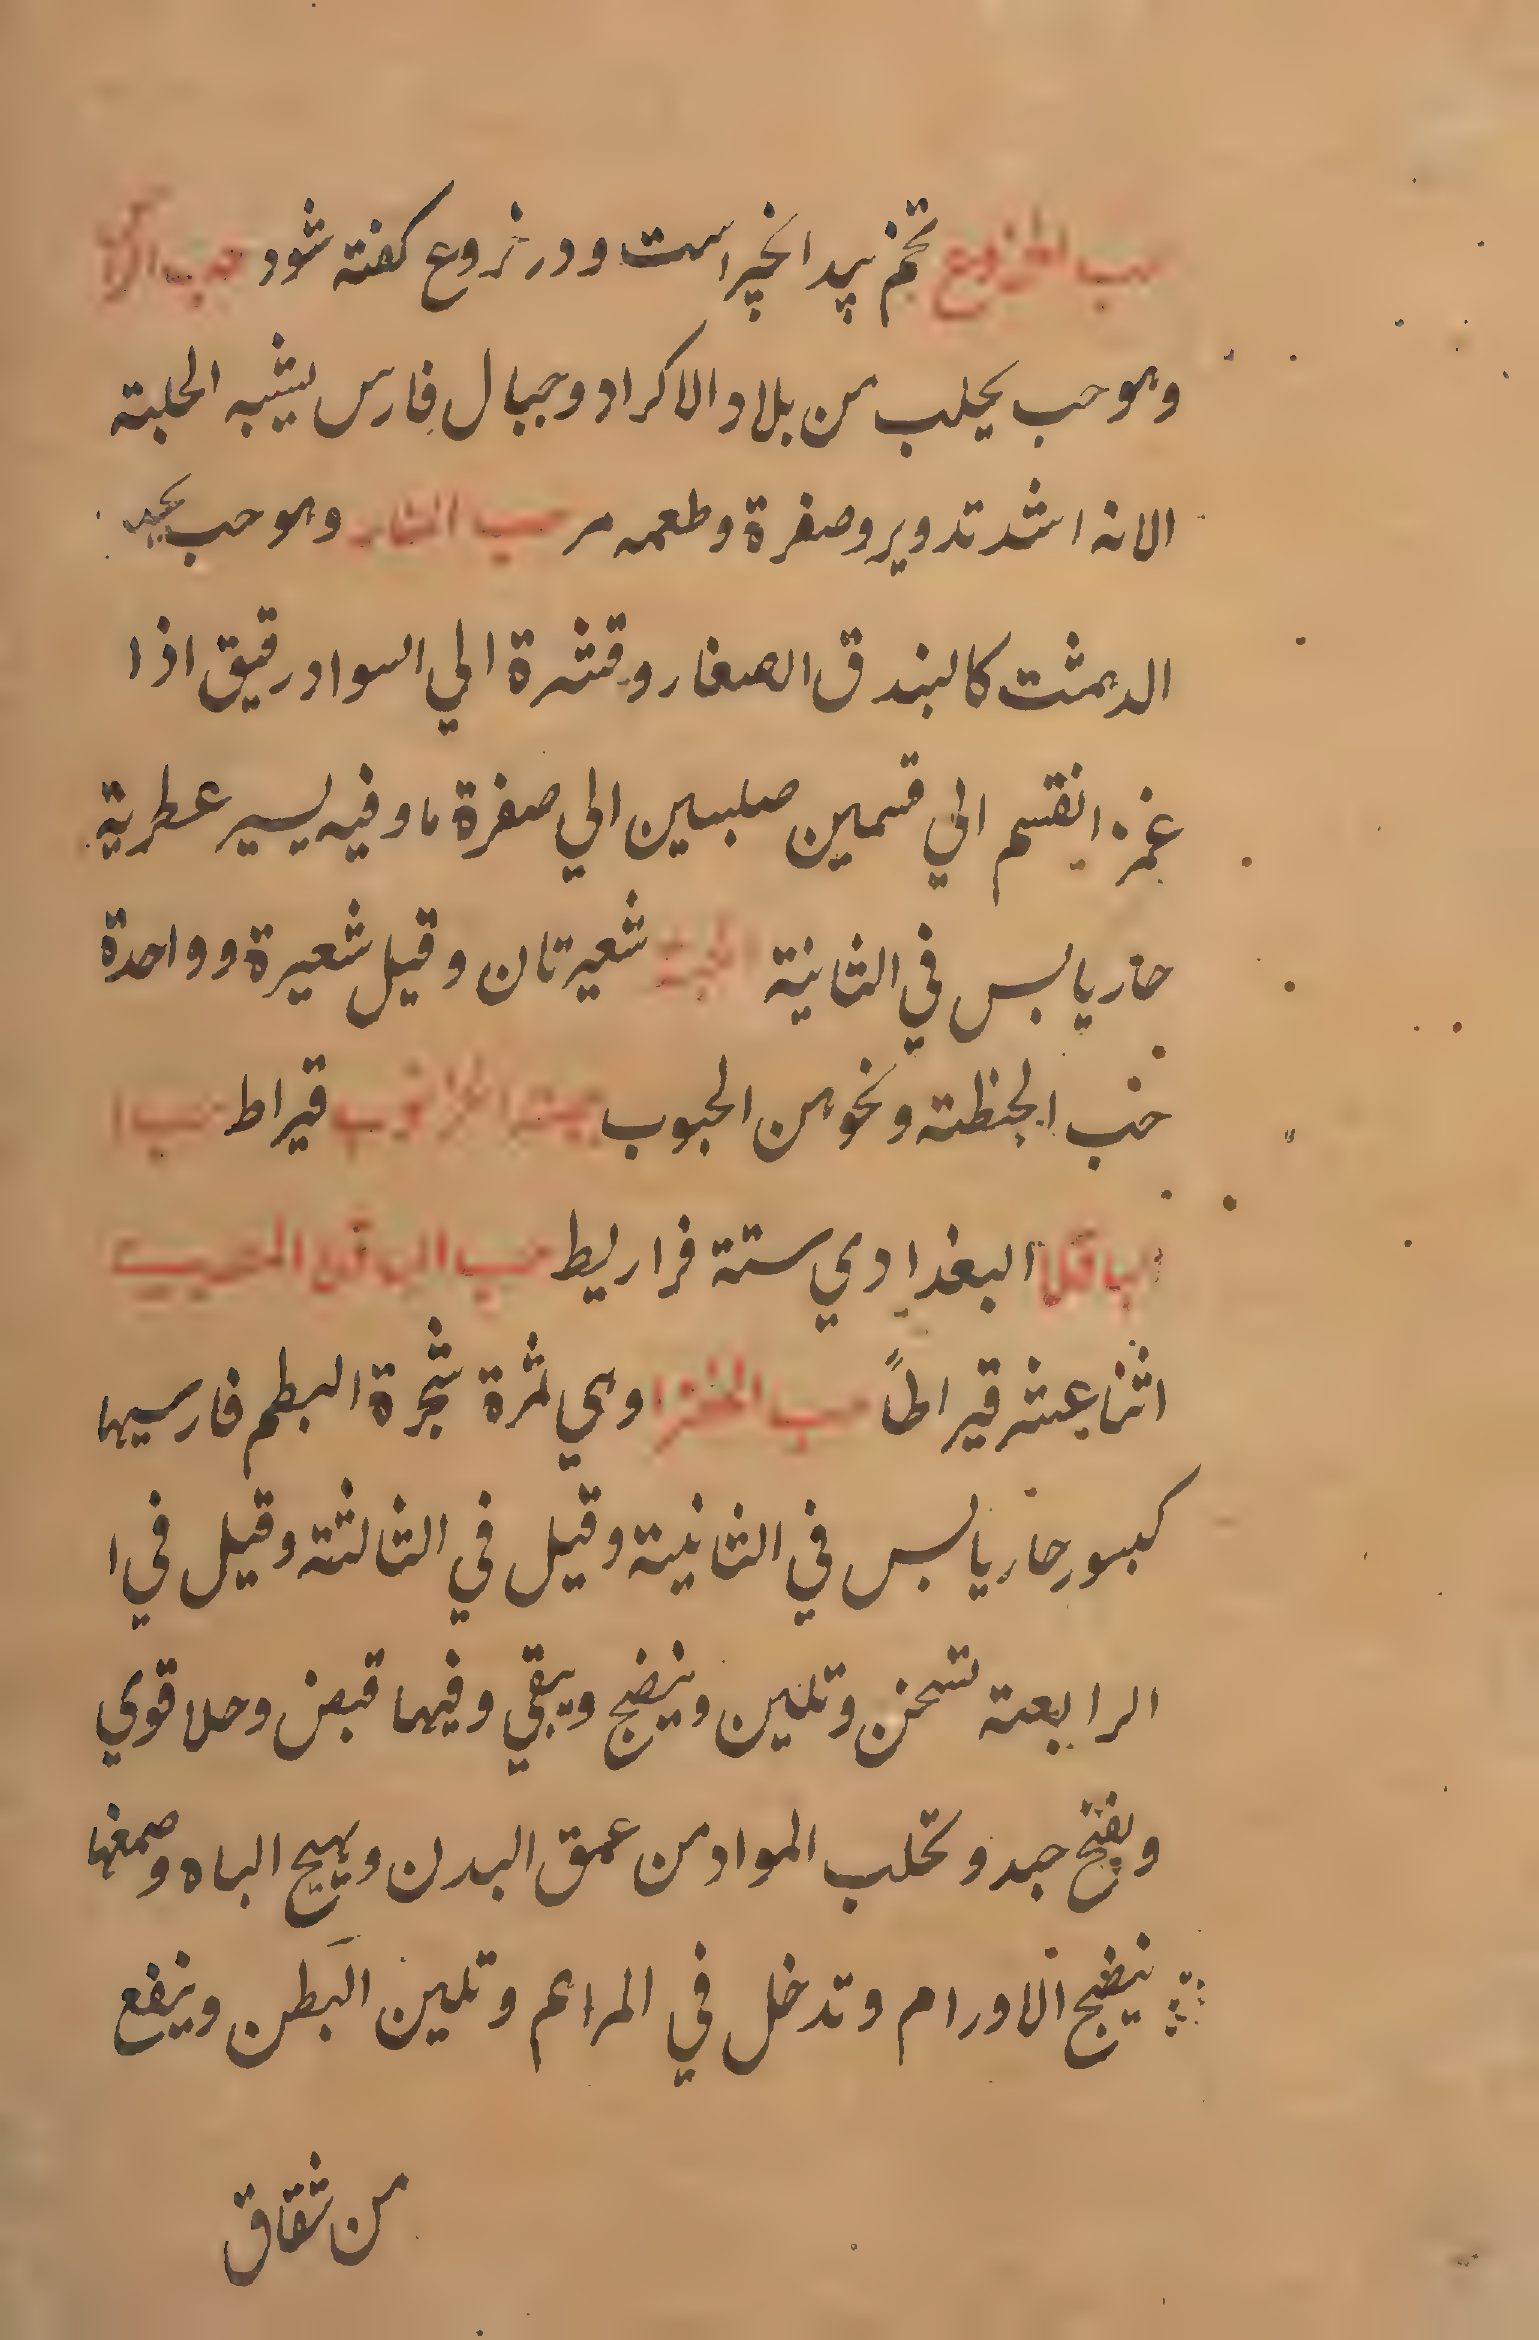 حب الخروع تخم پيد انجير است و در خروع كفته شود حب الا
وهو حب يحلب من بلاد والاكراد وجبال فارس يشبه الحلبته
الانه اشد تدوير وصفرة وطعمه مر حب الغار وهو حب
الدهمثت كالبندق الصغار وقشرة الي السواد رقيق اذا
غمزه انقسم الي قسمين صلبين الي صفرة ما وفيه يسير عطرية
حار يابس في الثانية الحبة شعيرتان وقيل شعيرة وواحدة
حب الحنظته ونخو من الحبوب حبة الخرنوب قيراط حب ا
الباقلا البغدادي ستة قراريط حب الباقلي المصري
اثنا عشر قيراطاً حب الخضرا وهي ثمرة شجرة البطم فارسيها
كبسور حار يابس في الثانية وقيل في الثالثة وقيل في ا
الرابعته تسخن وتلين وينضج ويبقي وفيها قبض وحلا قوي
ويفتح جيد وتحلب المواد من عمق البدن ويهيج الباه وصمغها
ينضج الاورام وتدخل في المراهم وتلين البطن وينفع
من شقاق